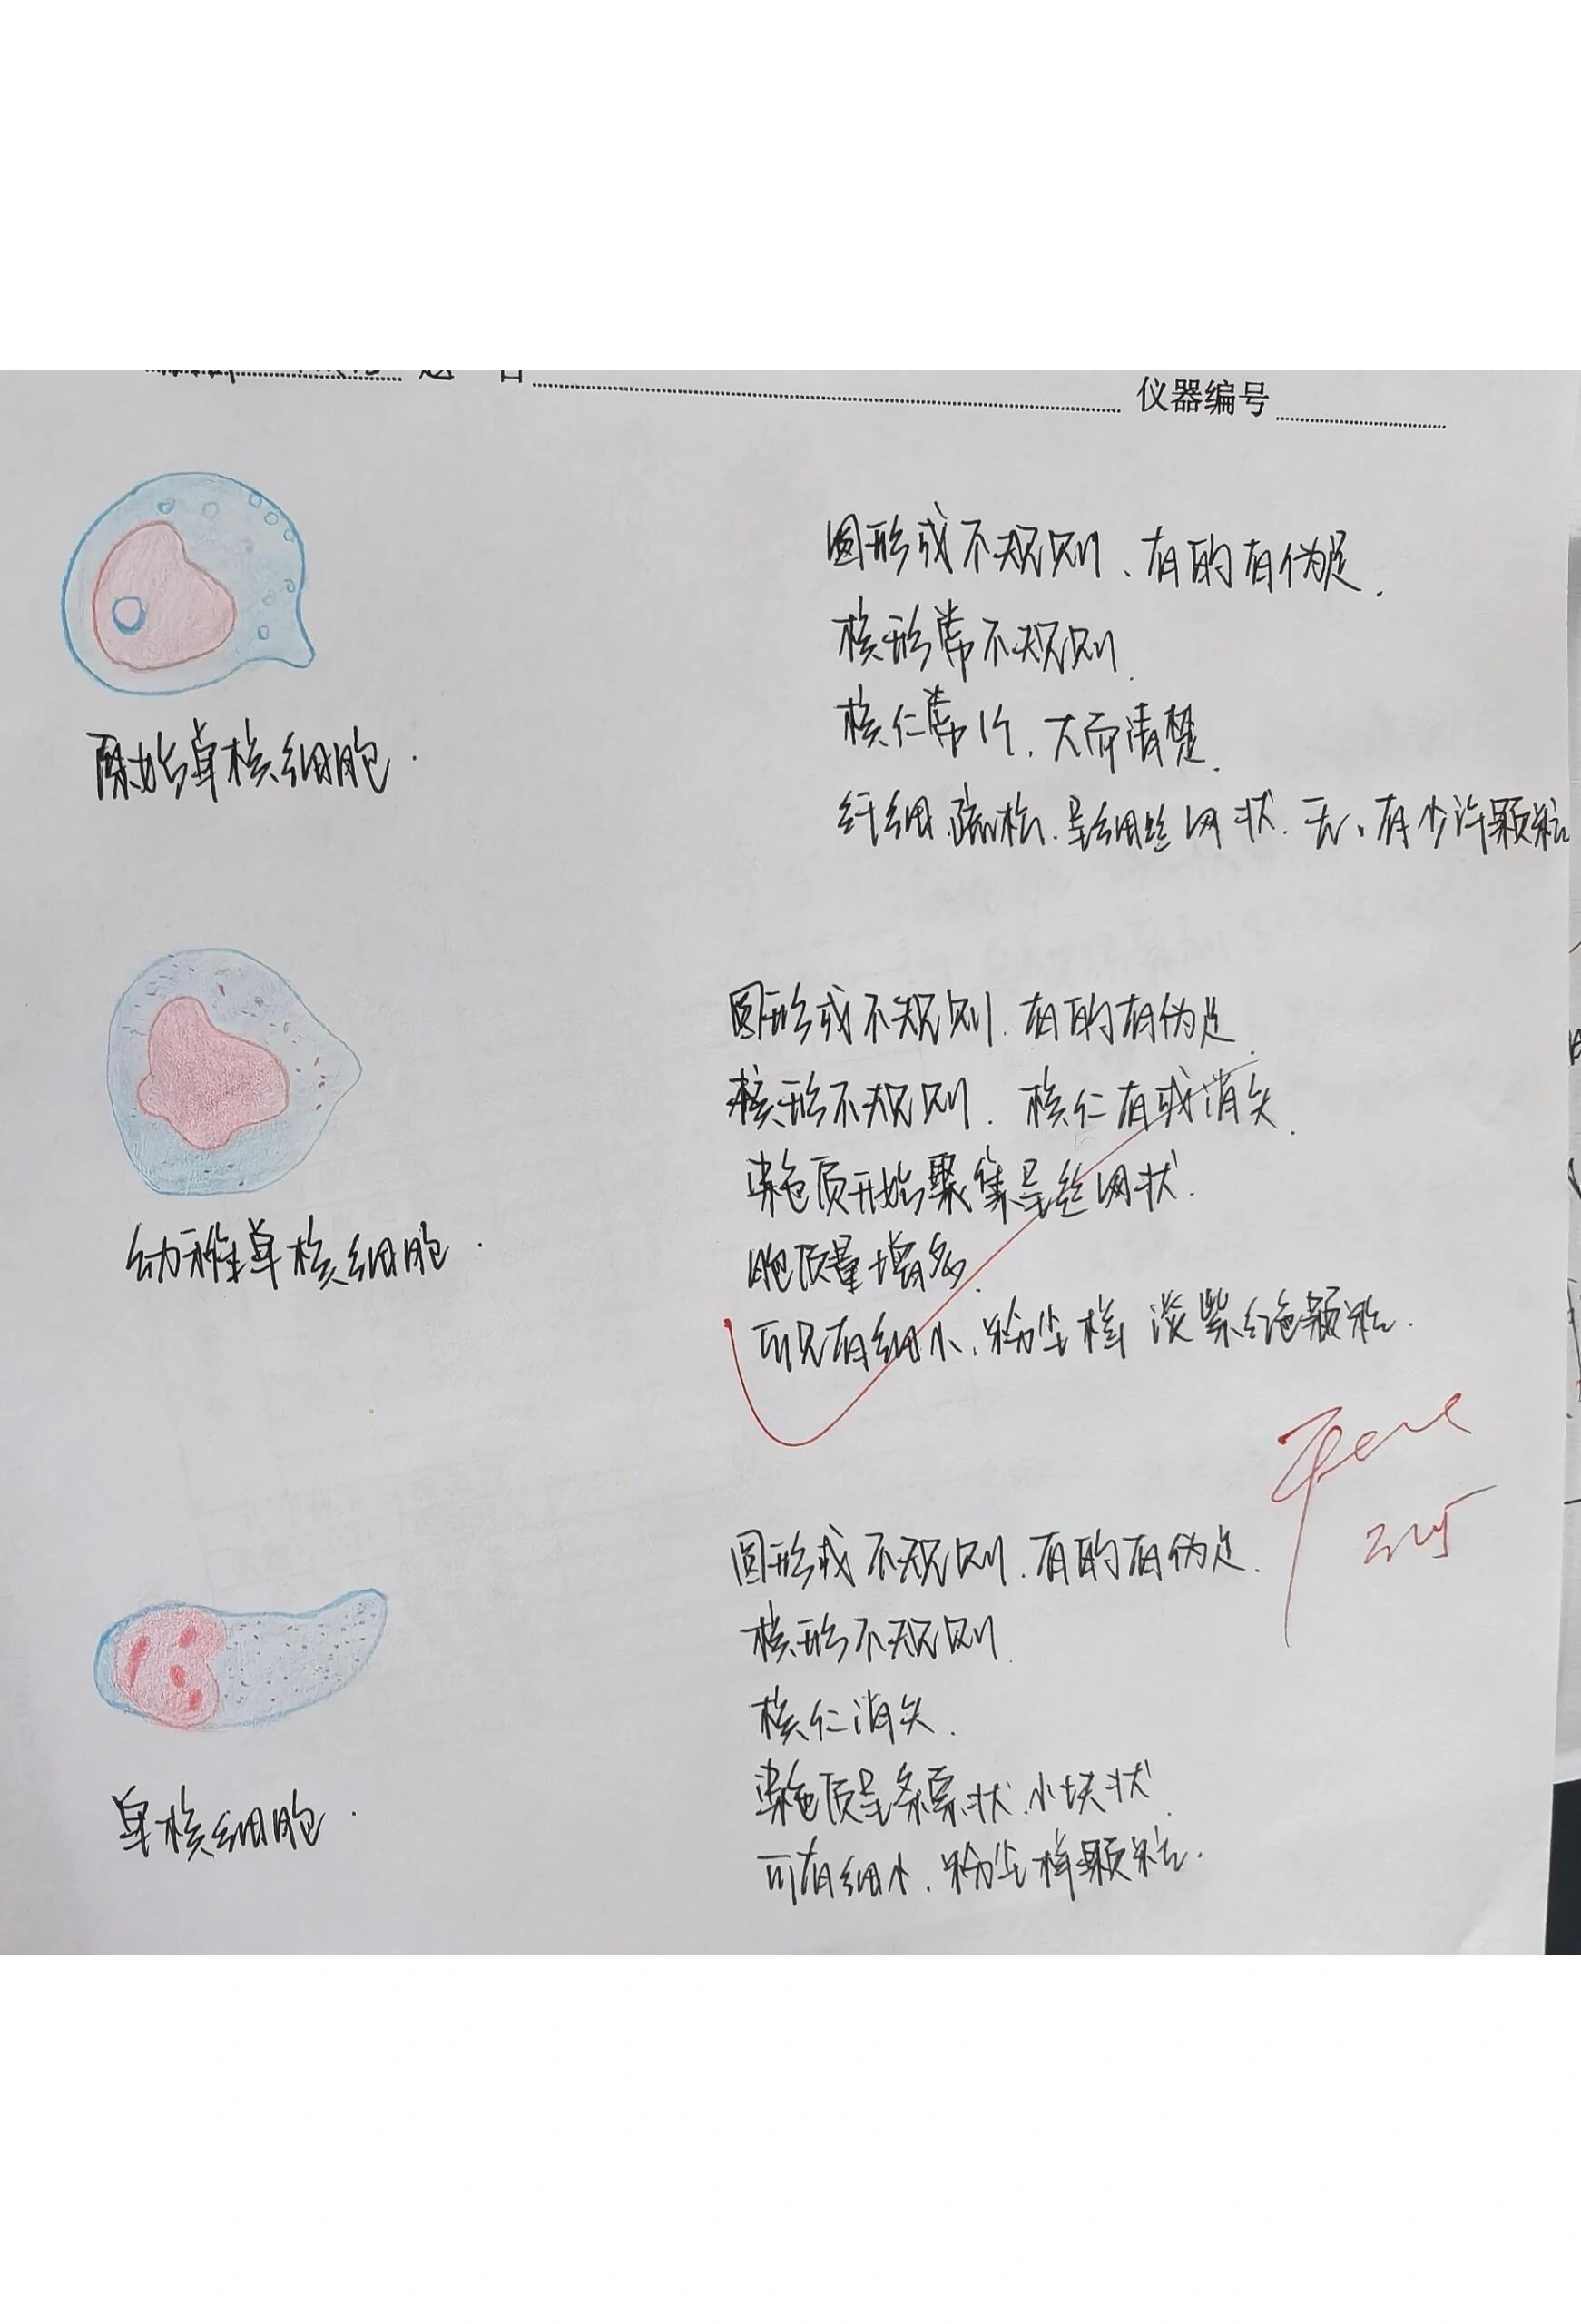 仪器编号
圆形或不规则、有的有伪足.
核形常不规则.
核仁常1个,大而清楚.
原始单核细胞.
纤细.疏松.呈细丝网状.无、有少许颗粒
圆形或不规则.有的有伪足
核形不规则.核仁有或消失.
染色质开始聚集呈丝网状.
胞质量增多.
幼稚单核细胞.
可见有细小、粉尘样 淡紫红色颗粒.
圆形或不规则.有的有伪足.
核形不规则
核仁消失.
染色质呈条索状.小块状.
单核细胞.
可有细小.粉尘样颗粒.